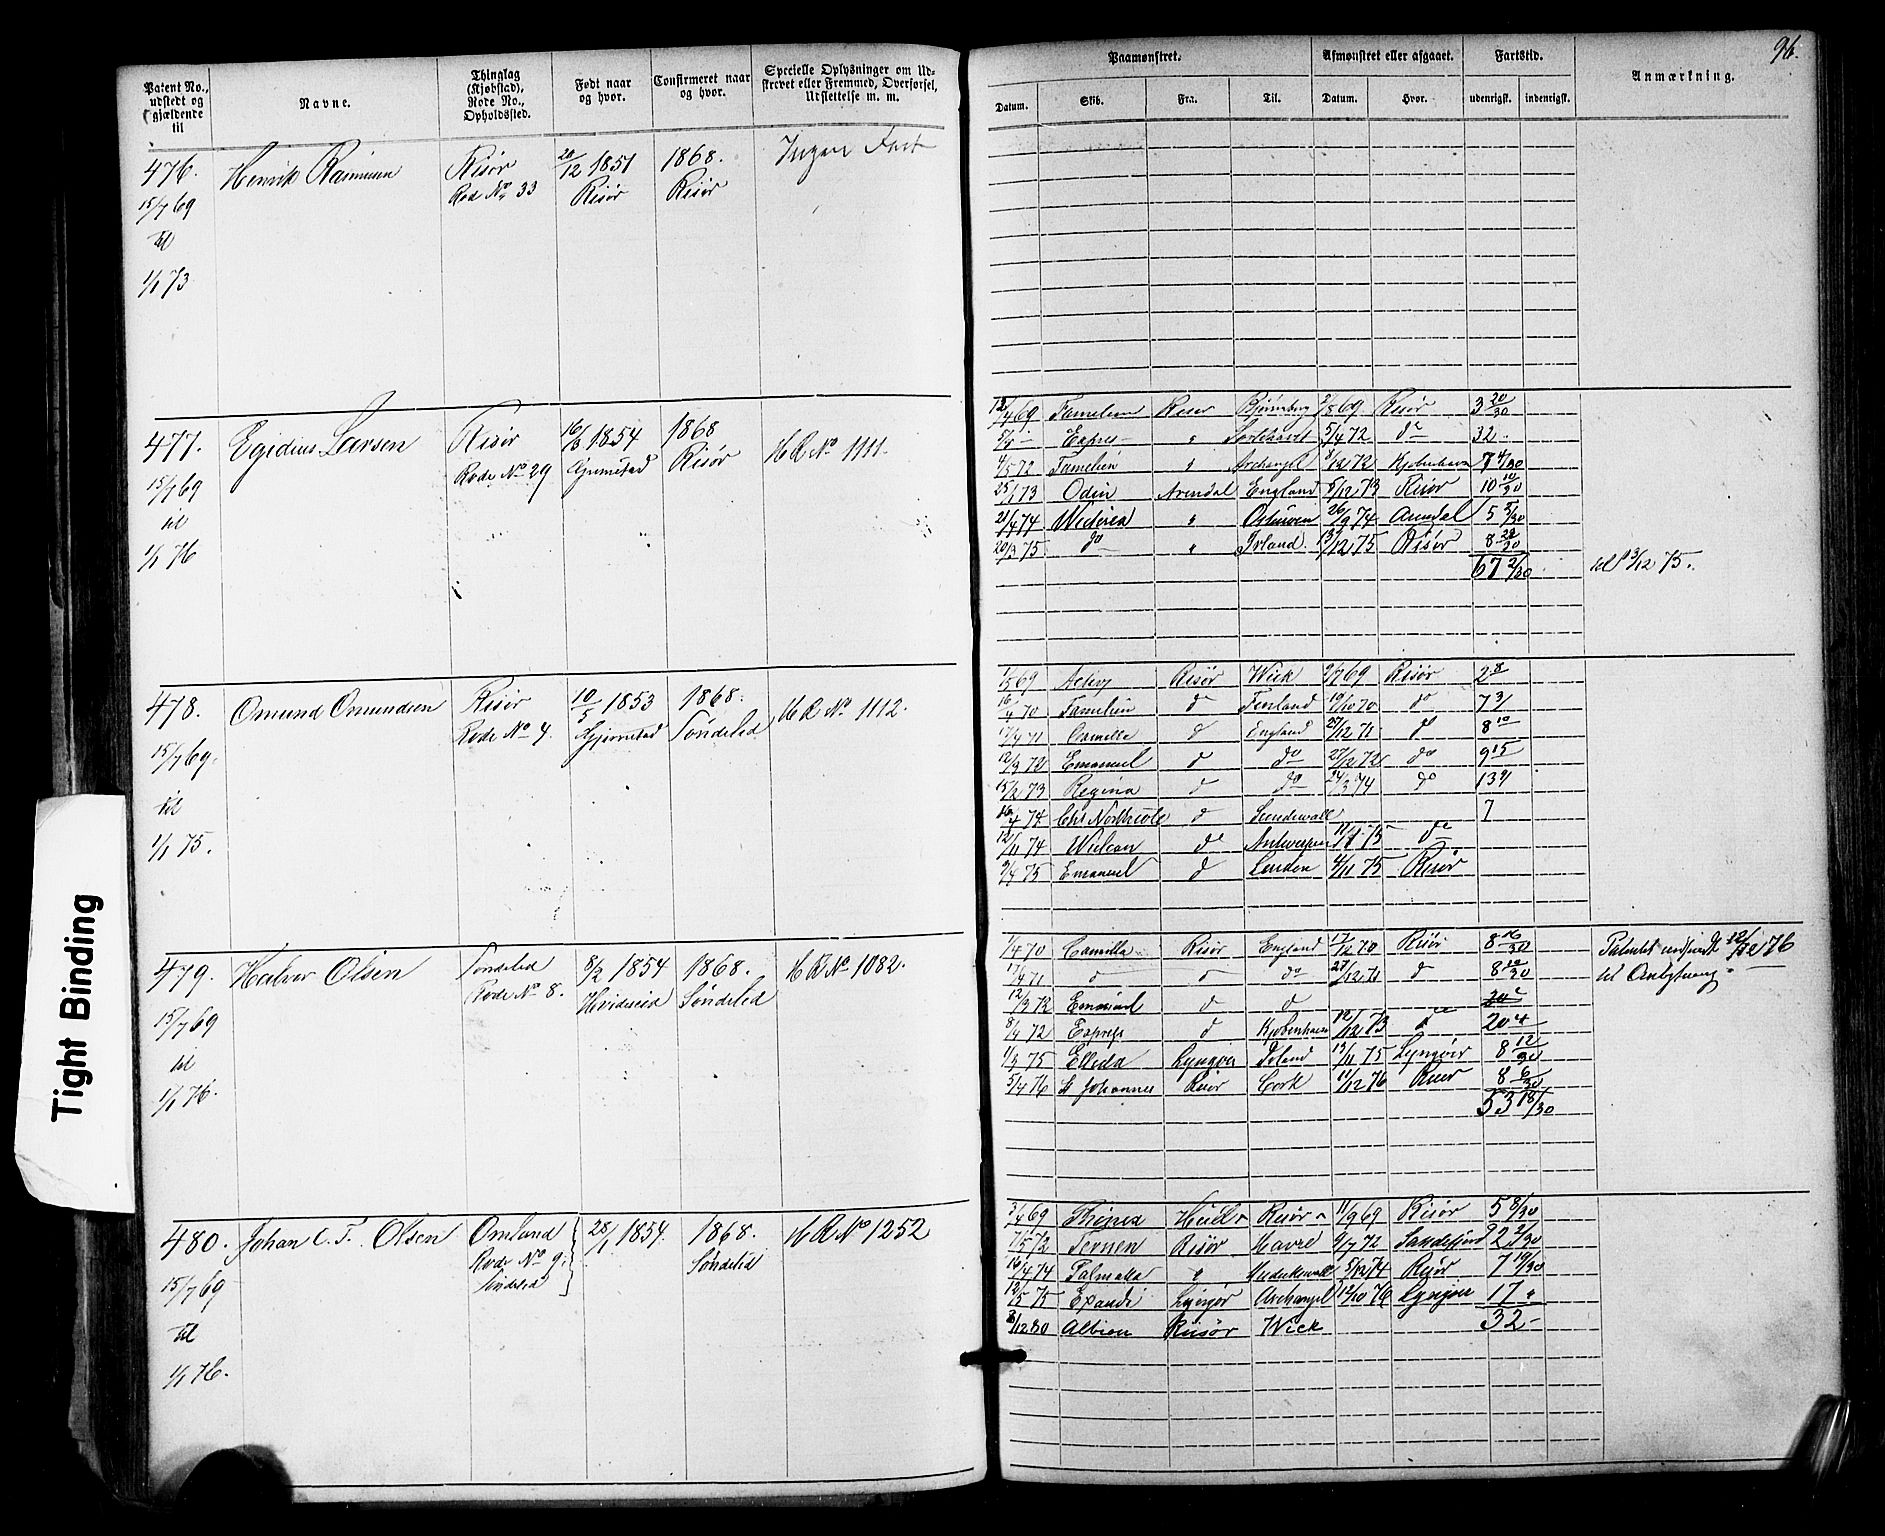 96.
Patent No., udstedt og gjældende til
Navne.
Thinglag (Kjøbstad), Rode No., Opholdssted.
Født naar og hvor.
Confirmeret naar og hvor.
Specielle Oplysninger om Udstrevet eller Fremmed, Overførsel, Udslettelse m. m.
Paamønstret.
Afmønstret eller afgaaet.
Fartstid.
Anmærkning.
Datum. Skib. Fra. Til. Datum. Hvor. udenrigst. indenrigst.
476. Henrik Rasmusen Risør 20/12 1851 1868. Ingen Fart
15/7 69 Rode No. 33 Risør Risør
til
1/1 73
477. Egidius Larsen Risør 16/8 1854 1868 HR No 1111.
15/7 69 Rode No 29 Risør
til
1/1 76
12/4 69 Familien Risør 69 Risør 3 20/30
Expres 5/4 72 do 32
4/5 72 Familien " Archangel 3/12 72 Kjøbenhavn 7 4/30
25/1 73 Odin Arendal England 5/12 73 Risør 10 10/30
21/4 74 " 26/9 74 Arendal 5 5/30
20/3 75 do " Irland 13/12 75 Risør
67 2/30 til 13/12 75.
478. Omund Omundsen Risør 10/5 1853 1868. HR No. 1112.
15/7 69. Rode No 4. Søndeled
til
1/1 75.
1/5 69 Risør Wick 69 Risør 2 8
16/4 70 Familien do Finland 19/10 70 do 7 3
17/4 71 Camilla d England 27/12 71 do 8 10
12/3 72 Emanuel d do 27/12 72 do 9 15
15/2 73 Regina d do 24/3 74 do 13 9
74 Chr. d Sundswall 7
12/11 74 Wulcan do Antwerpen 75 do
2/4 75 Emanuel d London 4/11 75 Risør
479. Halvor Olsen Søndeled 8/2 1854 1868. HR No 1082.
15/7 69 Rode No 8. Hvideseid Søndeled
til
1/1 76.
1/4 70 Camilla Risør England 17/12 70 Risør 8 16/30 Patentet indsendt 12/12 76
17/4 71 d d do 27/12 71 d 8 10/30 til
12/3 72 Emanuel d d
8/4 72 Express d Kjøbenhavn 12/12 73 do 20 4
1/3 75 Elleda Lyngør Irland 13/11 75 Lyngør 8 12/30
5/4 76 St Johannes Risør Cork 11/12 76 Risør 8 6/30
53 18/30
480. Johan C. T. Olsen Omland 28/1 1854 1868. HR No 1252
15/7 69 Rode No 9. Søndeled
til Søndeled
1/1 76.
3/4 69 Risør 11/9 69 Risør 5 8/30
7/5 72 Ternen Risør Havre 9/7 72 Sandefjord 2 2/30
16/4 74 " 5/12 74 Risør 7 19/30
12/5 75 Lyngør Archangel 12/10 76 Lyngør 17 "
3/12 80 Albion Risør Wick 32 -
Tight Binding